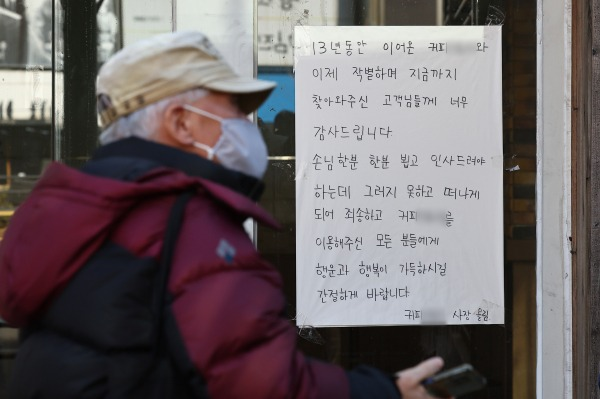 13년동안 이어온 커피 와
이제 작별하며 지금까지
찾아와주신 고객님들께 너무
감사드립니다
손님한분 한분 뵙고 인사드려야
하는데 그러지 못하고 떠나게
되어 죄송하고 커피 를
이용해주신 모든 분들에게
행운과 행복이 가득하시길
간절하게 바랍니다
커피 사장 올림